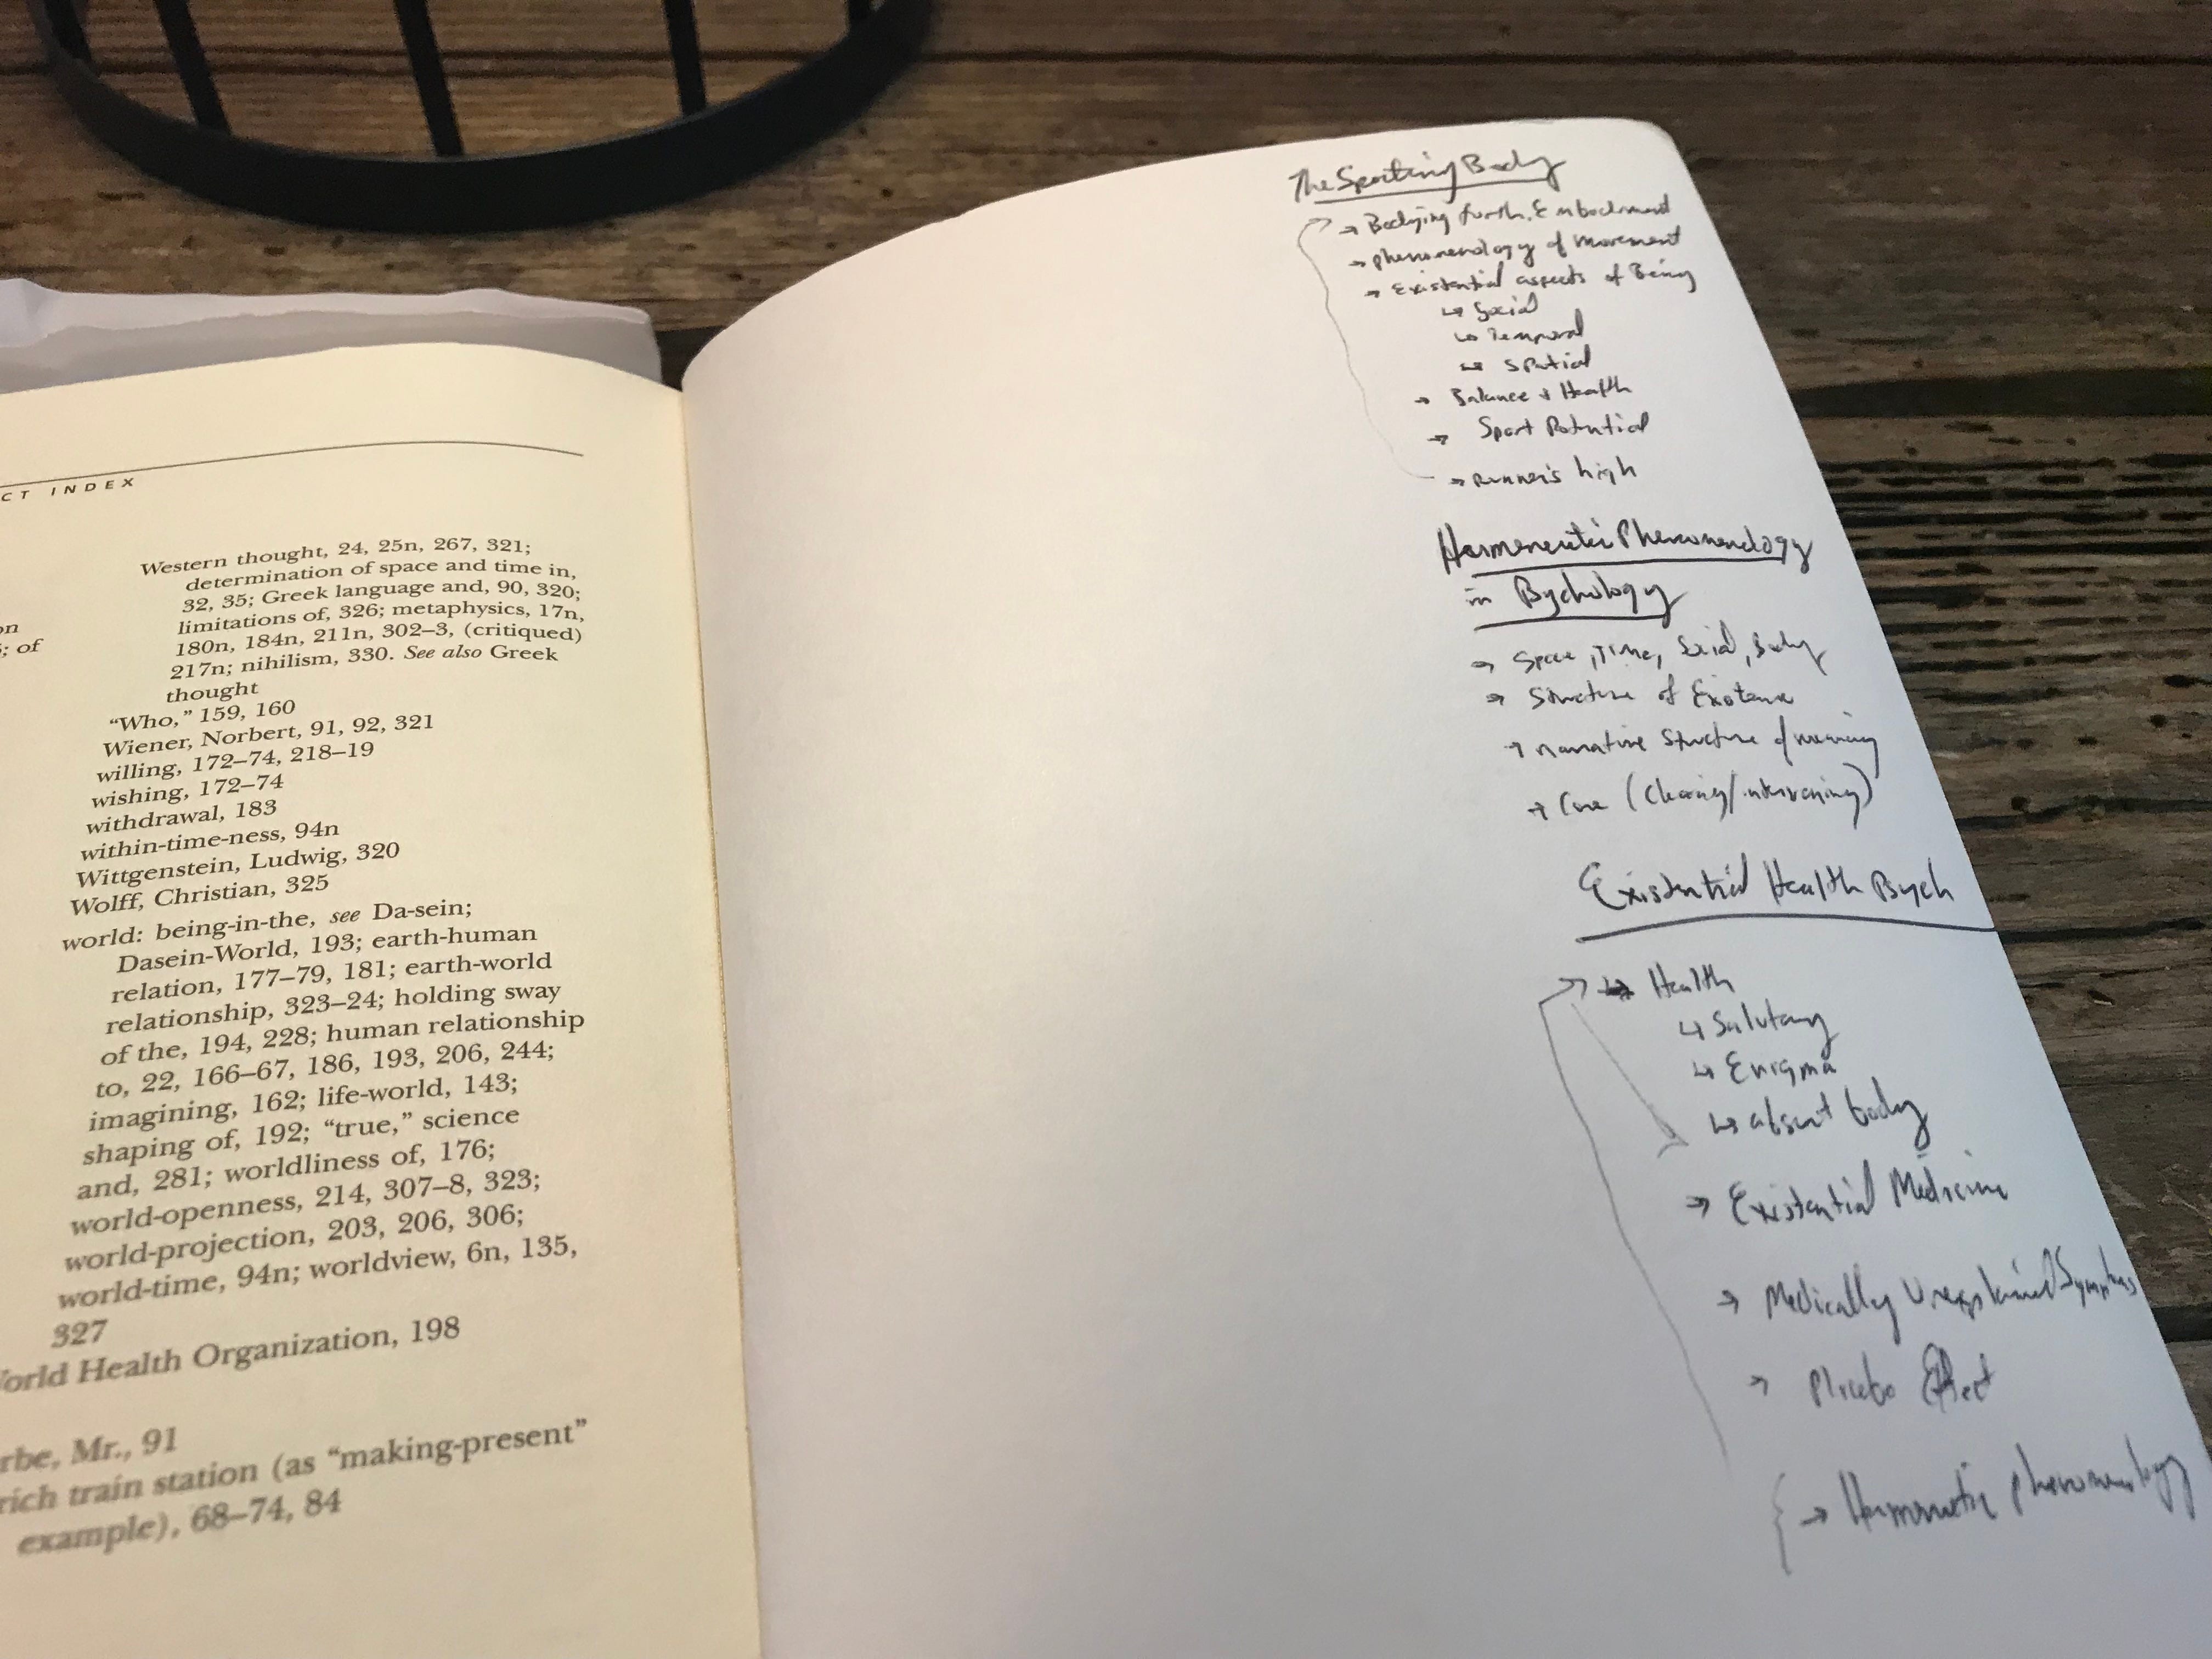 CT INDEX
on
; of
Western thought, 24, 25n, 267, 321;
determination of space and time in,
32, 35; Greek language and, 90, 320;
limitations of, 326; metaphysics, 17n,
180n, 184n, 211n, 302–3, (critiqued)
217n; nihilism, 330. See also Greek
thought
“Who,” 159, 160
Wiener, Norbert, 91, 92, 321
willing, 172–74, 218–19
wishing, 172–74
withdrawal, 183
within-time-ness, 94n
Wittgenstein, Ludwig, 320
Wolff, Christian, 325
world: being-in-the, see Da-sein;
Dasein-World, 193; earth-human
relation, 177–79, 181; earth-world
relationship, 323–24; holding sway
of the, 194, 228; human relationship
to, 22, 166–67, 186, 193, 206, 244;
imagining, 162; life-world, 143;
shaping of, 192; “true,” science
and, 281; worldliness of, 176;
world-openness, 214, 307–8, 323;
world-projection, 203, 206, 306;
world-time, 94n; worldview, 6n, 135,
327
orld Health Organization, 198
rbe, Mr., 91
rich train station (as “making-present”
example), 68–74, 84
The Sporting Body
→ Bodying forth, Embodiment
→ phenomenology of movement
→ Existential aspects of Being
↳ Social
↳ Temporal
↳ Spatial
→ Balance & Health
→ Sport Potential
→ Runner's high
Hermeneutic Phenomenology
in Psychology
→ Space, Time, Social, Body
→ Structure of Existence
→ narrative Structure of meaning
→ Care (Clearing/intervening)
Existential Health Psych
→ Health
↳ Salutary
↳ Enigma
↳ absent body
→ Existential Medicine
→ Medically Unexplained Symptoms
→ Placebo Effect
→ Hermeneutic phenomenology